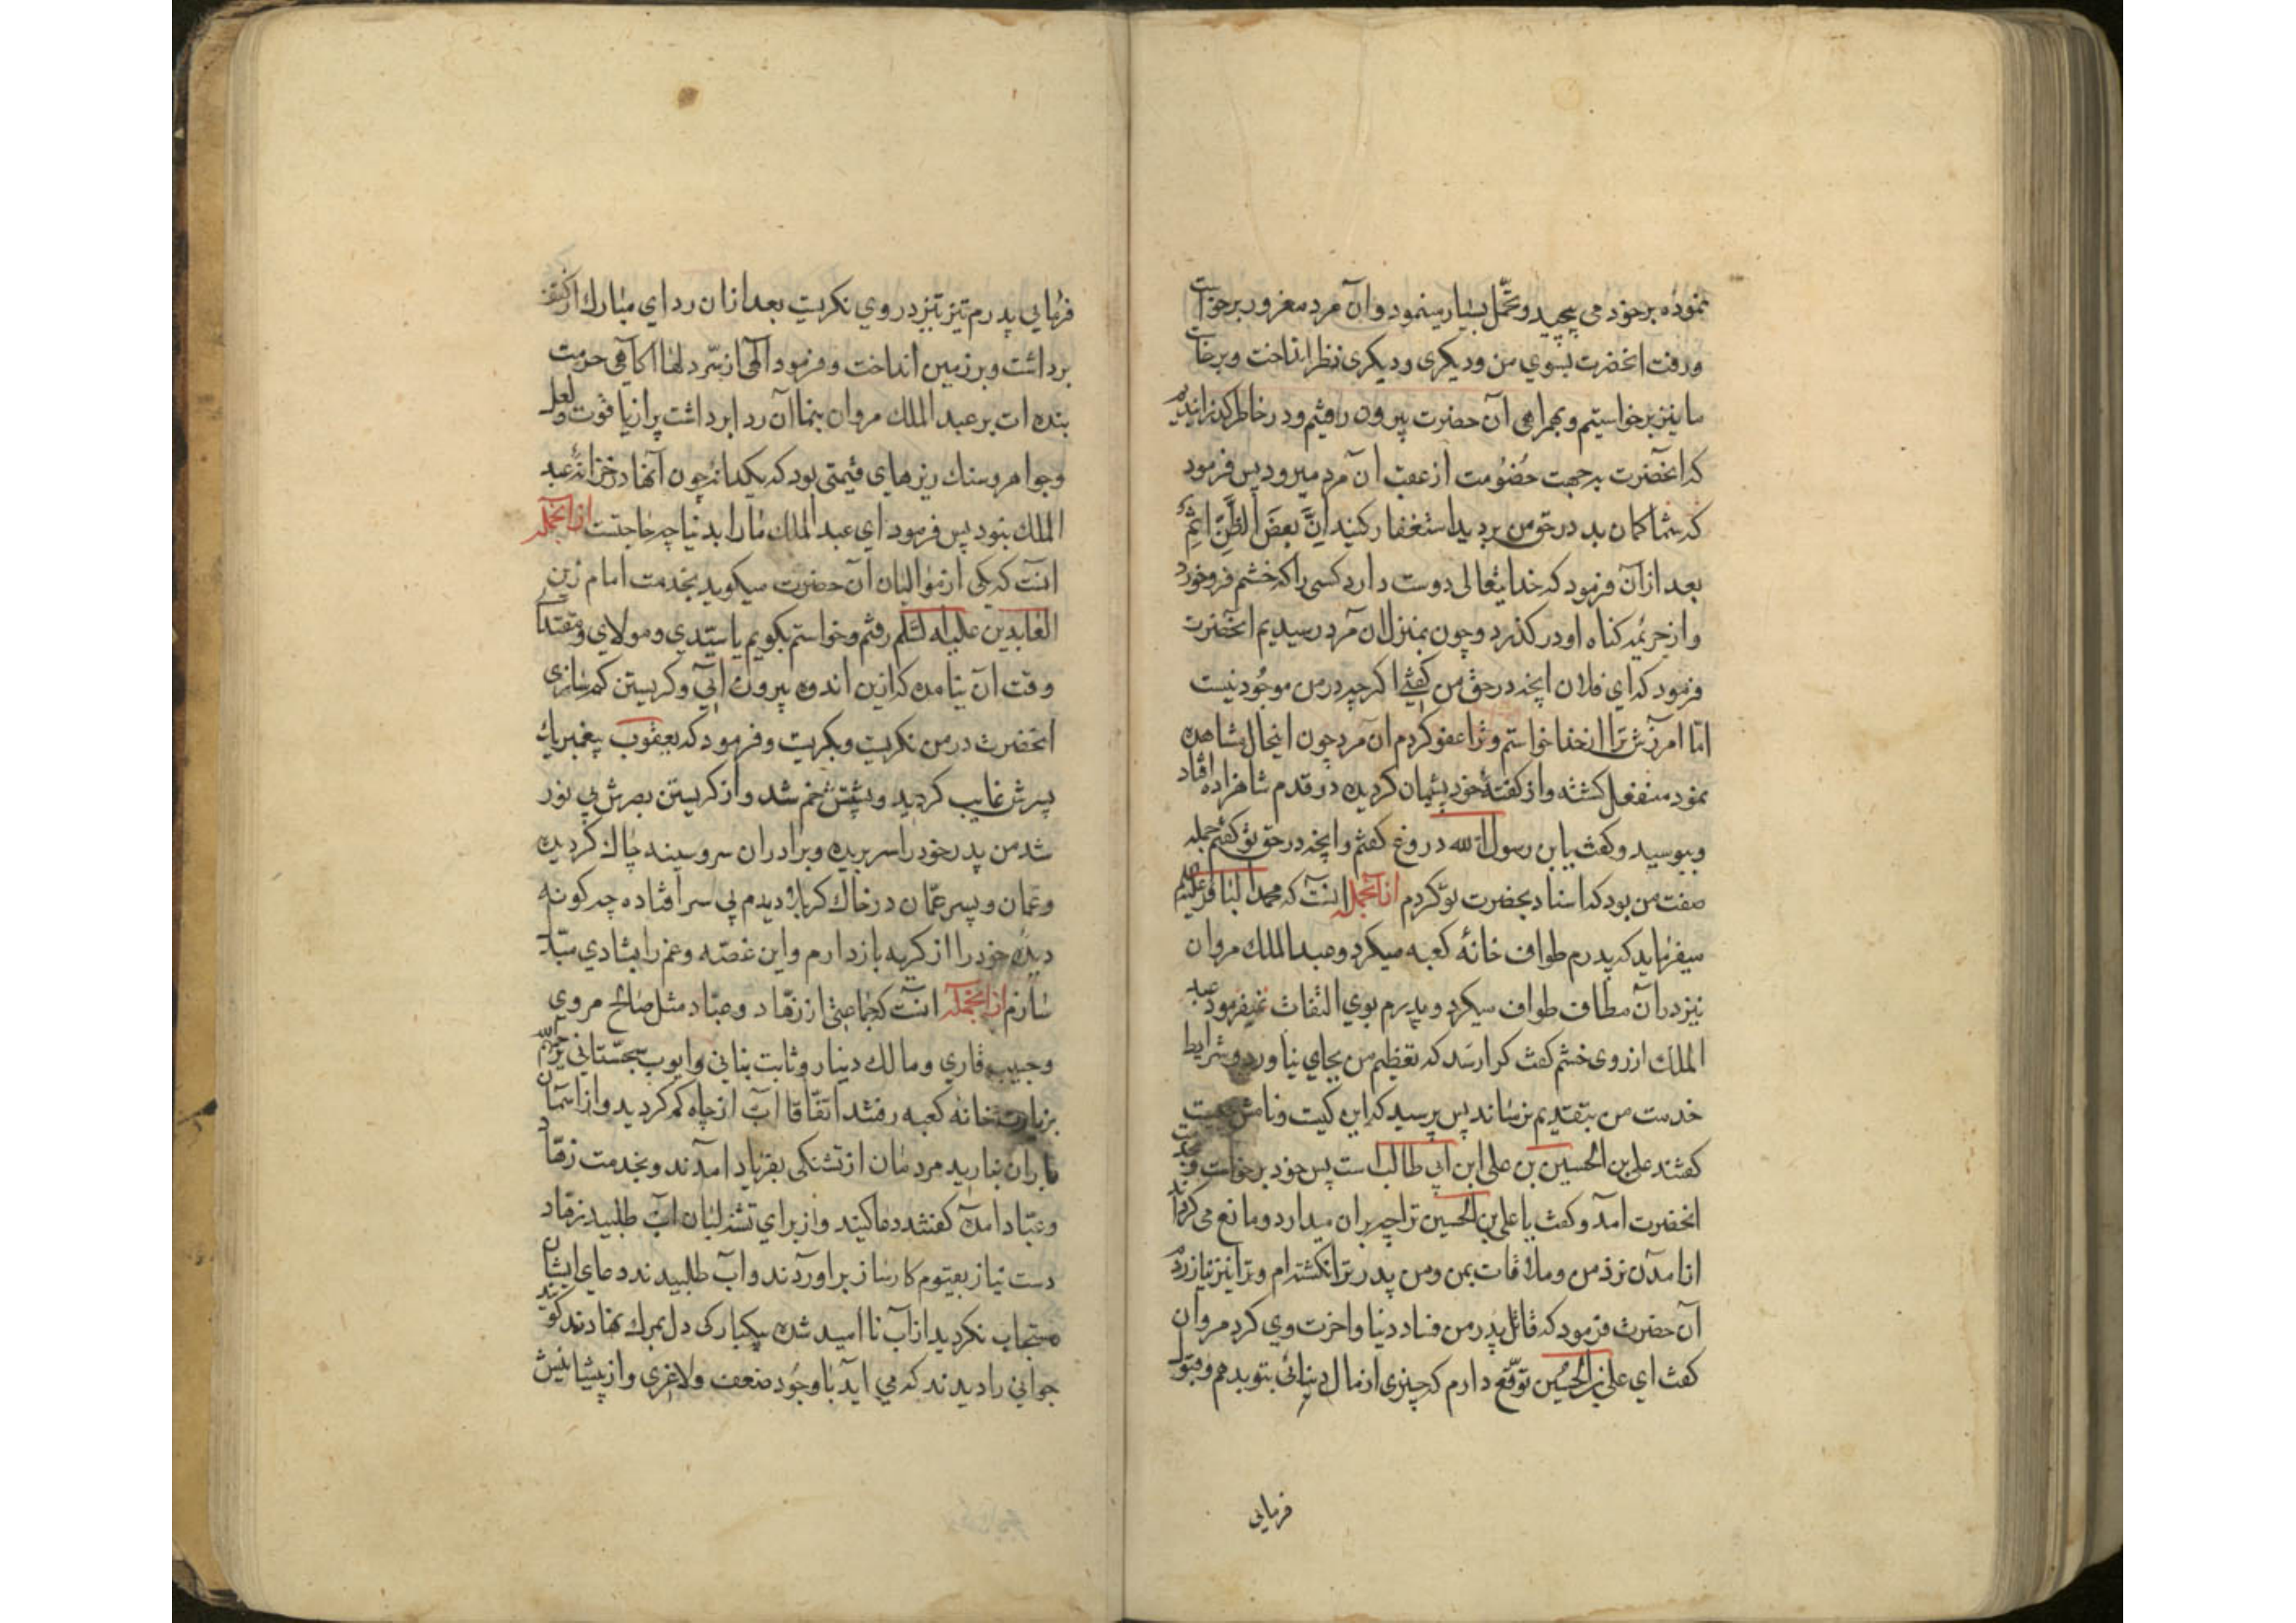 نموده بر خود می پیچید و تحمّل بسیار مینمود و آن مرد مغرور برخواست
و رفت انحضرت بسوي من و دیکری و دیکری نظر انداخت و برخاست
ما نیز برخواستیم و بهمراهی آن حضرت بیرون رفتیم و در خاطر کذراندیم
که انحضرت بجهت خصومت از عقب آن مرد میرود پس فرمود
که شما کمان بد در حق من بردید استغفار کنید اِنَّ بعضَ الظَّنِّ اثمٌ
بعد از آن فرمود که خدایتعالی دوست دارد کسی را که خشم فرو خورد
و از جریمه کناه او در کذرد و چون بمنزل آن مرد رسیدیم انحضرت
فرمود که اي فلان انچه در حق من کفتی اکرچه در من موجود نیست
امّا امرزش ترا از خدا خواستم و ترا عفو کردم آن مرد چون اینحال مشاهده
نمود منفعل کشته و از کفتهٔ خود پشیمان کردیده در قدم شاهزاده افتاد
و ببوسید و کفت یا بن رسول الله دروغ کفتم و انچه در حق تو کفتم جمله
صفت من بود که اسناد بحضرت تو کردم ازانجمله انست که محمد الباقر علیه
میفرماید که پدرم طواف خانهٔ کعبه میکرد و عبد الملك مروان
نیز در آن مطاف طواف میکرد و پدرم بوي التفات نمیفرمود عبد
الملك از روی خشم کفت کرا رسد که تعظیم من بجاي نیاورد و شرایط
خدمت من بتقدیم نرساند پس پرسید که این کیست و نامش چیست
کفتند علی بن الحسین بن علی ابن ابی طالب است پس خود برخواست و بخدمت
انحضرت آمد و کفت یا علی بن الحسین ترا چه بران میدارد و مانع می کرداند
از آمدن نزد من و ملاقات بمن و من پدر ترا نکشته ام و ترا نیز نیازرده
آن حضرت فرمود که قاتل پدر من فساد دنیا و اخرت وي کرد مروان
کفت اي علی بن الحسین توقّع دارم که چیزی از مال دنیائی بتو بدهم و قبول
فرمایی
فرمایی پدرم تیز تیز در روي نکریست بعد از ان رداي مبارك از کتف
برداشت و بر زمین انداخت و فرمود الهی از سّر دلها اکاهی حرمت
بنده ات بر عبد الملك مروان بنما آن ردا برداشت پر از یاقوت و لعل
و جواهر و سنك ریزهاي قیمتی بود که یکدانه چون آنها در خزانهٔ عبد
الملك نبود پس فرمود اي عبد الملك ما را بدنیا چه حاجتست ازانجمله
انست که یکی از موالیان آن حضرت میکوید بخدمت امام زین
العابدین علیه السّلم رفتم و خواستم بکویم یا سیّدي و مولاي و مقتدا
وقت آن نیامده که ازین اندوه بیرون ائی و کریستن کم سازی
انحضرت در من نکریست و بکریست و فرمود که یعقوب پیغمبر یك
پسرش غایب کردید و پشتش خم شد و از کریستن بصرش بی نور
شد من پدر خود را سر بریده و برادران سر و سینه چاك کردیده
و عمّان و پسر عمّان در خاك کربلا دیدم بی سر افتاده چه کونه
دیده خود را از کریه باز دارم و این غصّه و غم را بشادي مبّدل
سازم ازانجمله انست که جماعتی از زهّاد و عبّاد مثل صالح مروی
و حبیب قاري و مالك دینار و ثابت بنانی و ایوب سجستانی
بزیارت خانه کعبه رفتند اتفّاقا آب از چاه کم کردید و از اسمان
باران نبارید مردمان از تشنکی بفریاد آمدند و بخدمت زهّاد
و عبّاد آمده کفتند دعا کنید و از براي تشنه لبان آب طلبید زهّاد
دست نیاز بقیّوم کارساز براوردند و آب طلبیدند دعاي ایشان
مستجاب نکردید از آب نا امید شده بیکبارکی دل بمرك نهادند کویند
جوانی را دیدند که می آید با وجود ضعف و لاغری و از پیشانیش